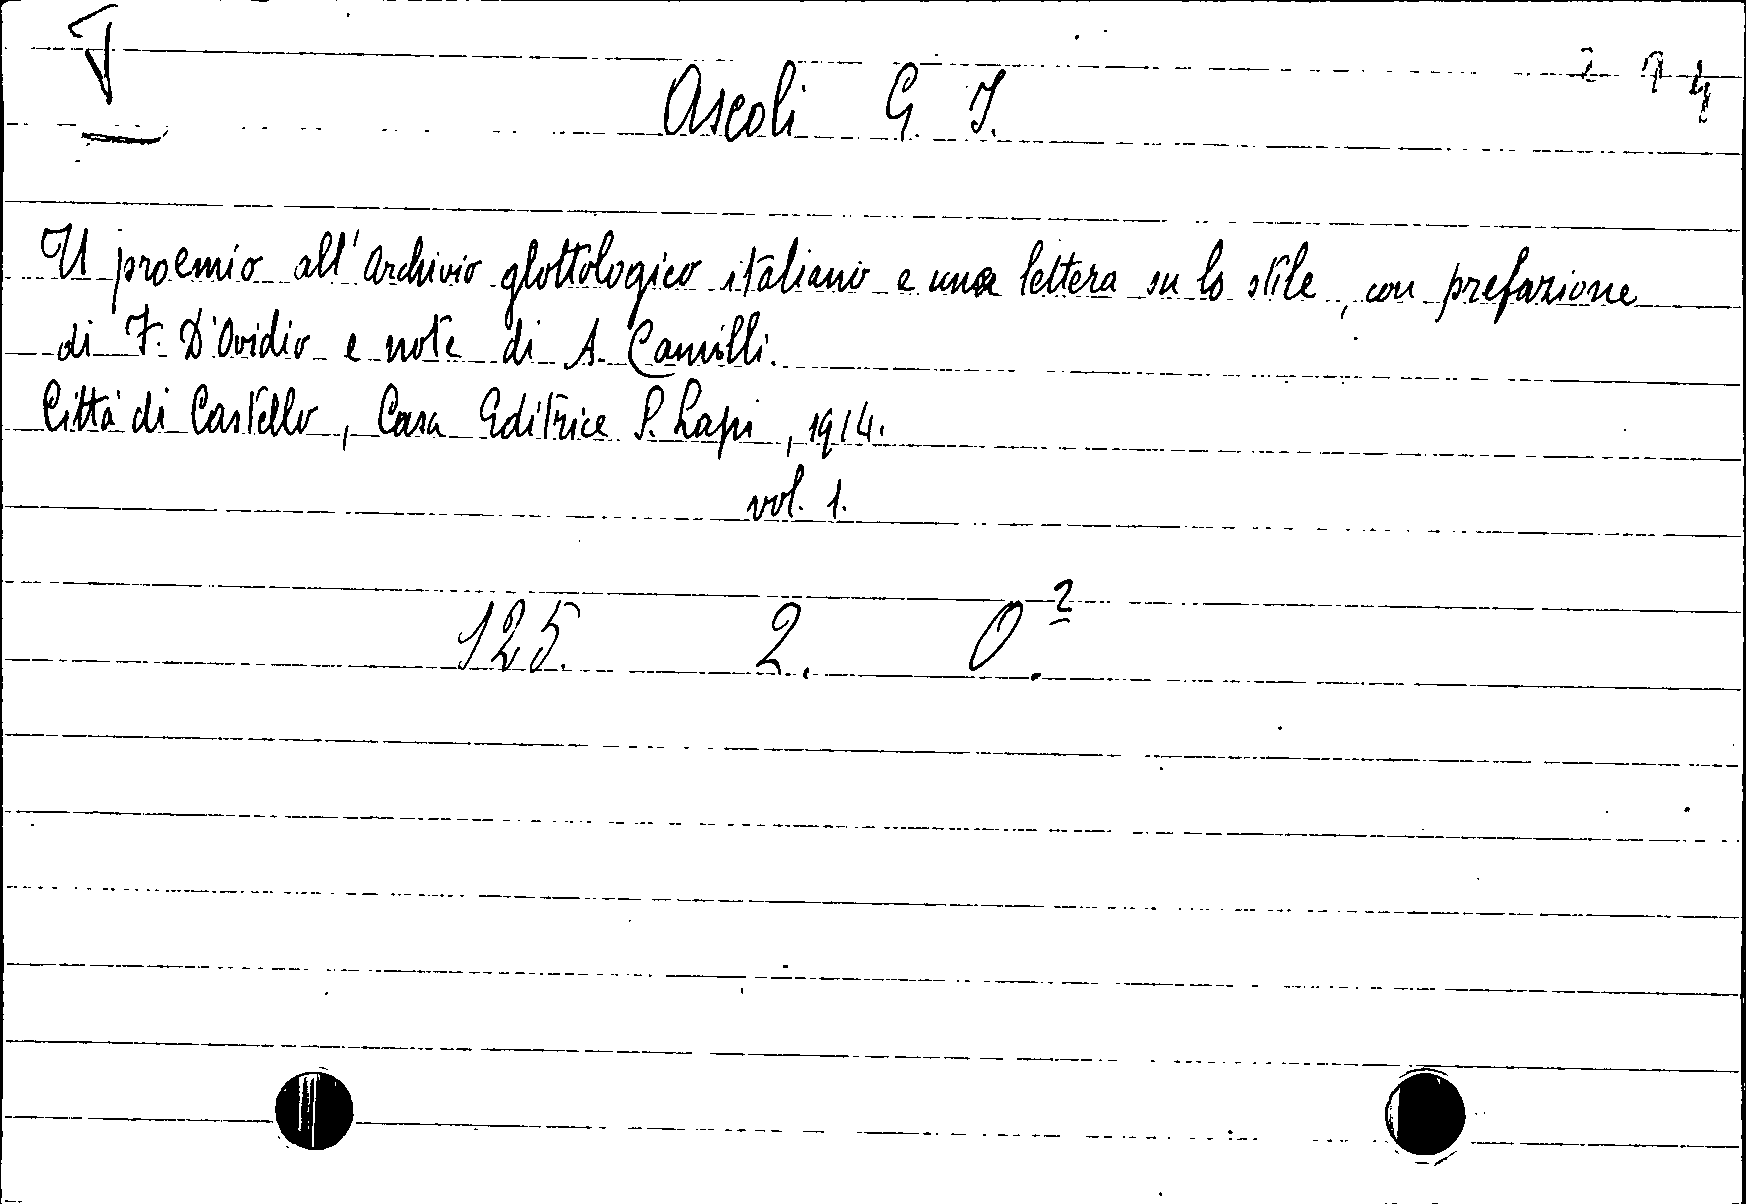 Ascoli G. I.
Il proemio all'Archivio glottologico italiano e una lettera su lo stile, con prefazione
di F. D'Ovidio e note di A. Camilli.
Città di Castello, Casa Editrice S. Lapi, 1914.
vol. 1.
125. 2. O.²